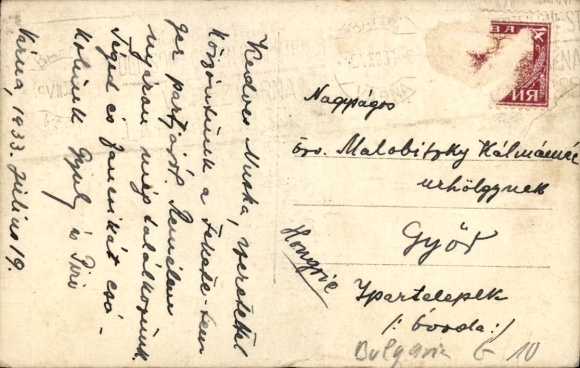 Kedves Muska, szeretettel
köszöntünk a Fekete-ten
ger partjáról. Remélem
nyáron még találkozunk.
Téged és Jancsikát csó-
kolunk Gyul és Piri
Várna, 1933. Július 19.
Nagyságos
özv. Malobitzky Kálmánné
urhölgynek
Győr
Hongrie
Ipartelepek
/: óvoda :/
Bulgaria G 10